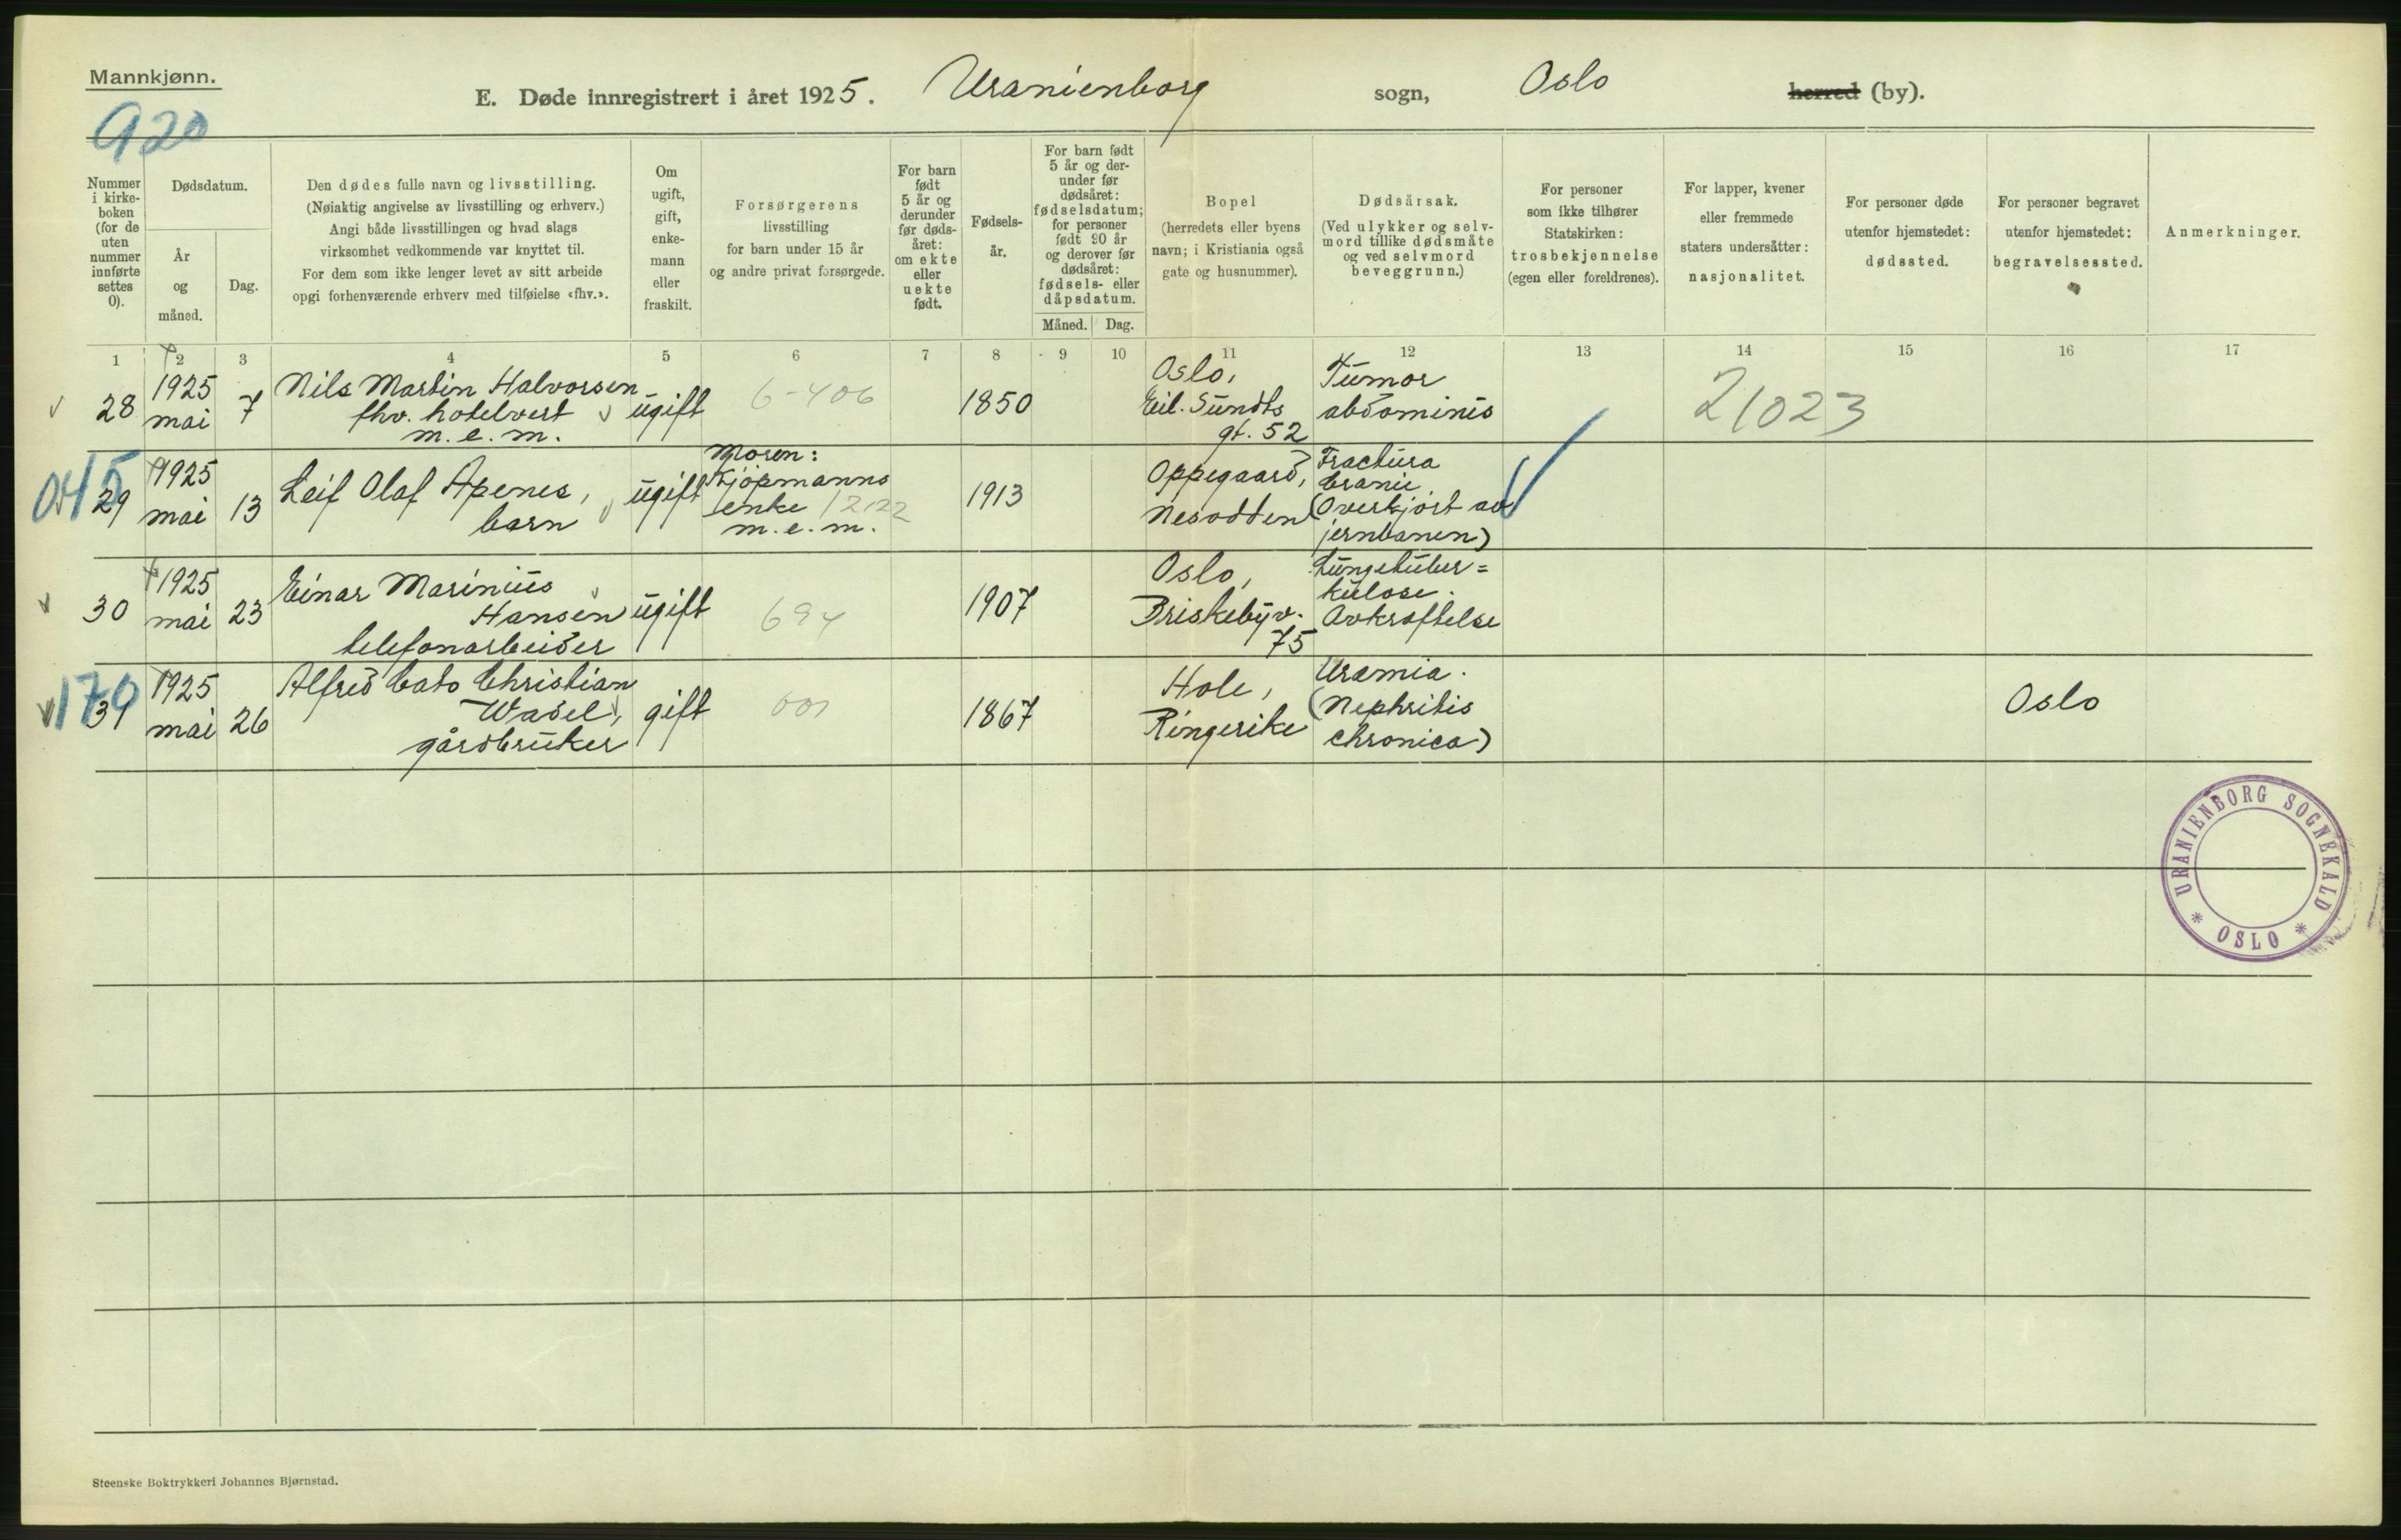 Mannkjønn.
920
E. Døde innregistrert i året 1925. Uranienborg sogn, Oslo herred (by).
Nummer i kirke-boken (for de uten nummer innførte settes 0).
Dødsdatum.
År og måned.
Dag.
Den dødes fulle navn og livsstilling.
(Nøiaktig angivelse av livsstilling og erhverv.)
Angi både livsstillingen og hvad slags
virksomhet vedkommende var knyttet til.
For dem som ikke lenger levet av sitt arbeide
opgi forhenværende erhverv med tilføielse «fhv.».
Om ugift, gift, enke-mann eller fraskilt.
Forsørgerens
livsstilling
for barn under 15 år
og andre privat forsørgede.
For barn født 5 år og derunder før døds-året: om ekte eller uekte født.
Fødsels-år.
For barn født 5 år og der-under før dødsåret: fødselsdatum; for personer født 90 år og derover før dødsåret: fødsels- eller dåpsdatum.
Måned. Dag.
Bopel
(herredets eller byens
navn; i Kristiania også
gate og husnummer).
Dødsårsak.
(Ved ulykker og selv-
mord tillike dødsmåte
og ved selvmord
beveggrunn.)
For personer
som ikke tilhører
Statskirken:
trosbekjennelse
(egen eller foreldrenes).
For lapper, kvener
eller fremmede
staters undersåtter:
nasjonalitet.
For personer døde
utenfor hjemstedet:
dødssted.
For personer begravet
utenfor hjemstedet:
begravelsessted.
Anmerkninger.
1 2 3 4 5 6 7 8 9 10 11 12 13 14 15 16 17
28 1925 mai 7
Nils Martin Halvorsen
fhv. hotelvert
m.e.m.
ugift
6-406
1850
Oslo,
Eil. Sundts
gt. 52
Tumor
abdominis
21023
29 1925 mai 13
Leif Olaf Apenes,
barn
ugift
Moren:
Kjøpmanns
enke 12122
m.e.m.
1913
Oppegaard,
Nesodden
Fractura
Cranie
(Overkjørt av
jernbanen)
30 1925 mai 23
Einar Marinius
Hansen
telefonarbeider
ugift
694
1907
Oslo,
Briskebyv.
75
Lungetuber=
kulose.
Avkræftelse
170
31 1925 mai 26
Alfred Cato Christian
Wadel,
gårdbruker
gift
001
1867
Hole,
Ringerike
Uræmia.
(Nephritis
chronica)
Oslo
URANIENBORG SOGNEKALD
* OSLO *
Steenske Boktrykkeri Johannes Bjørnstad.